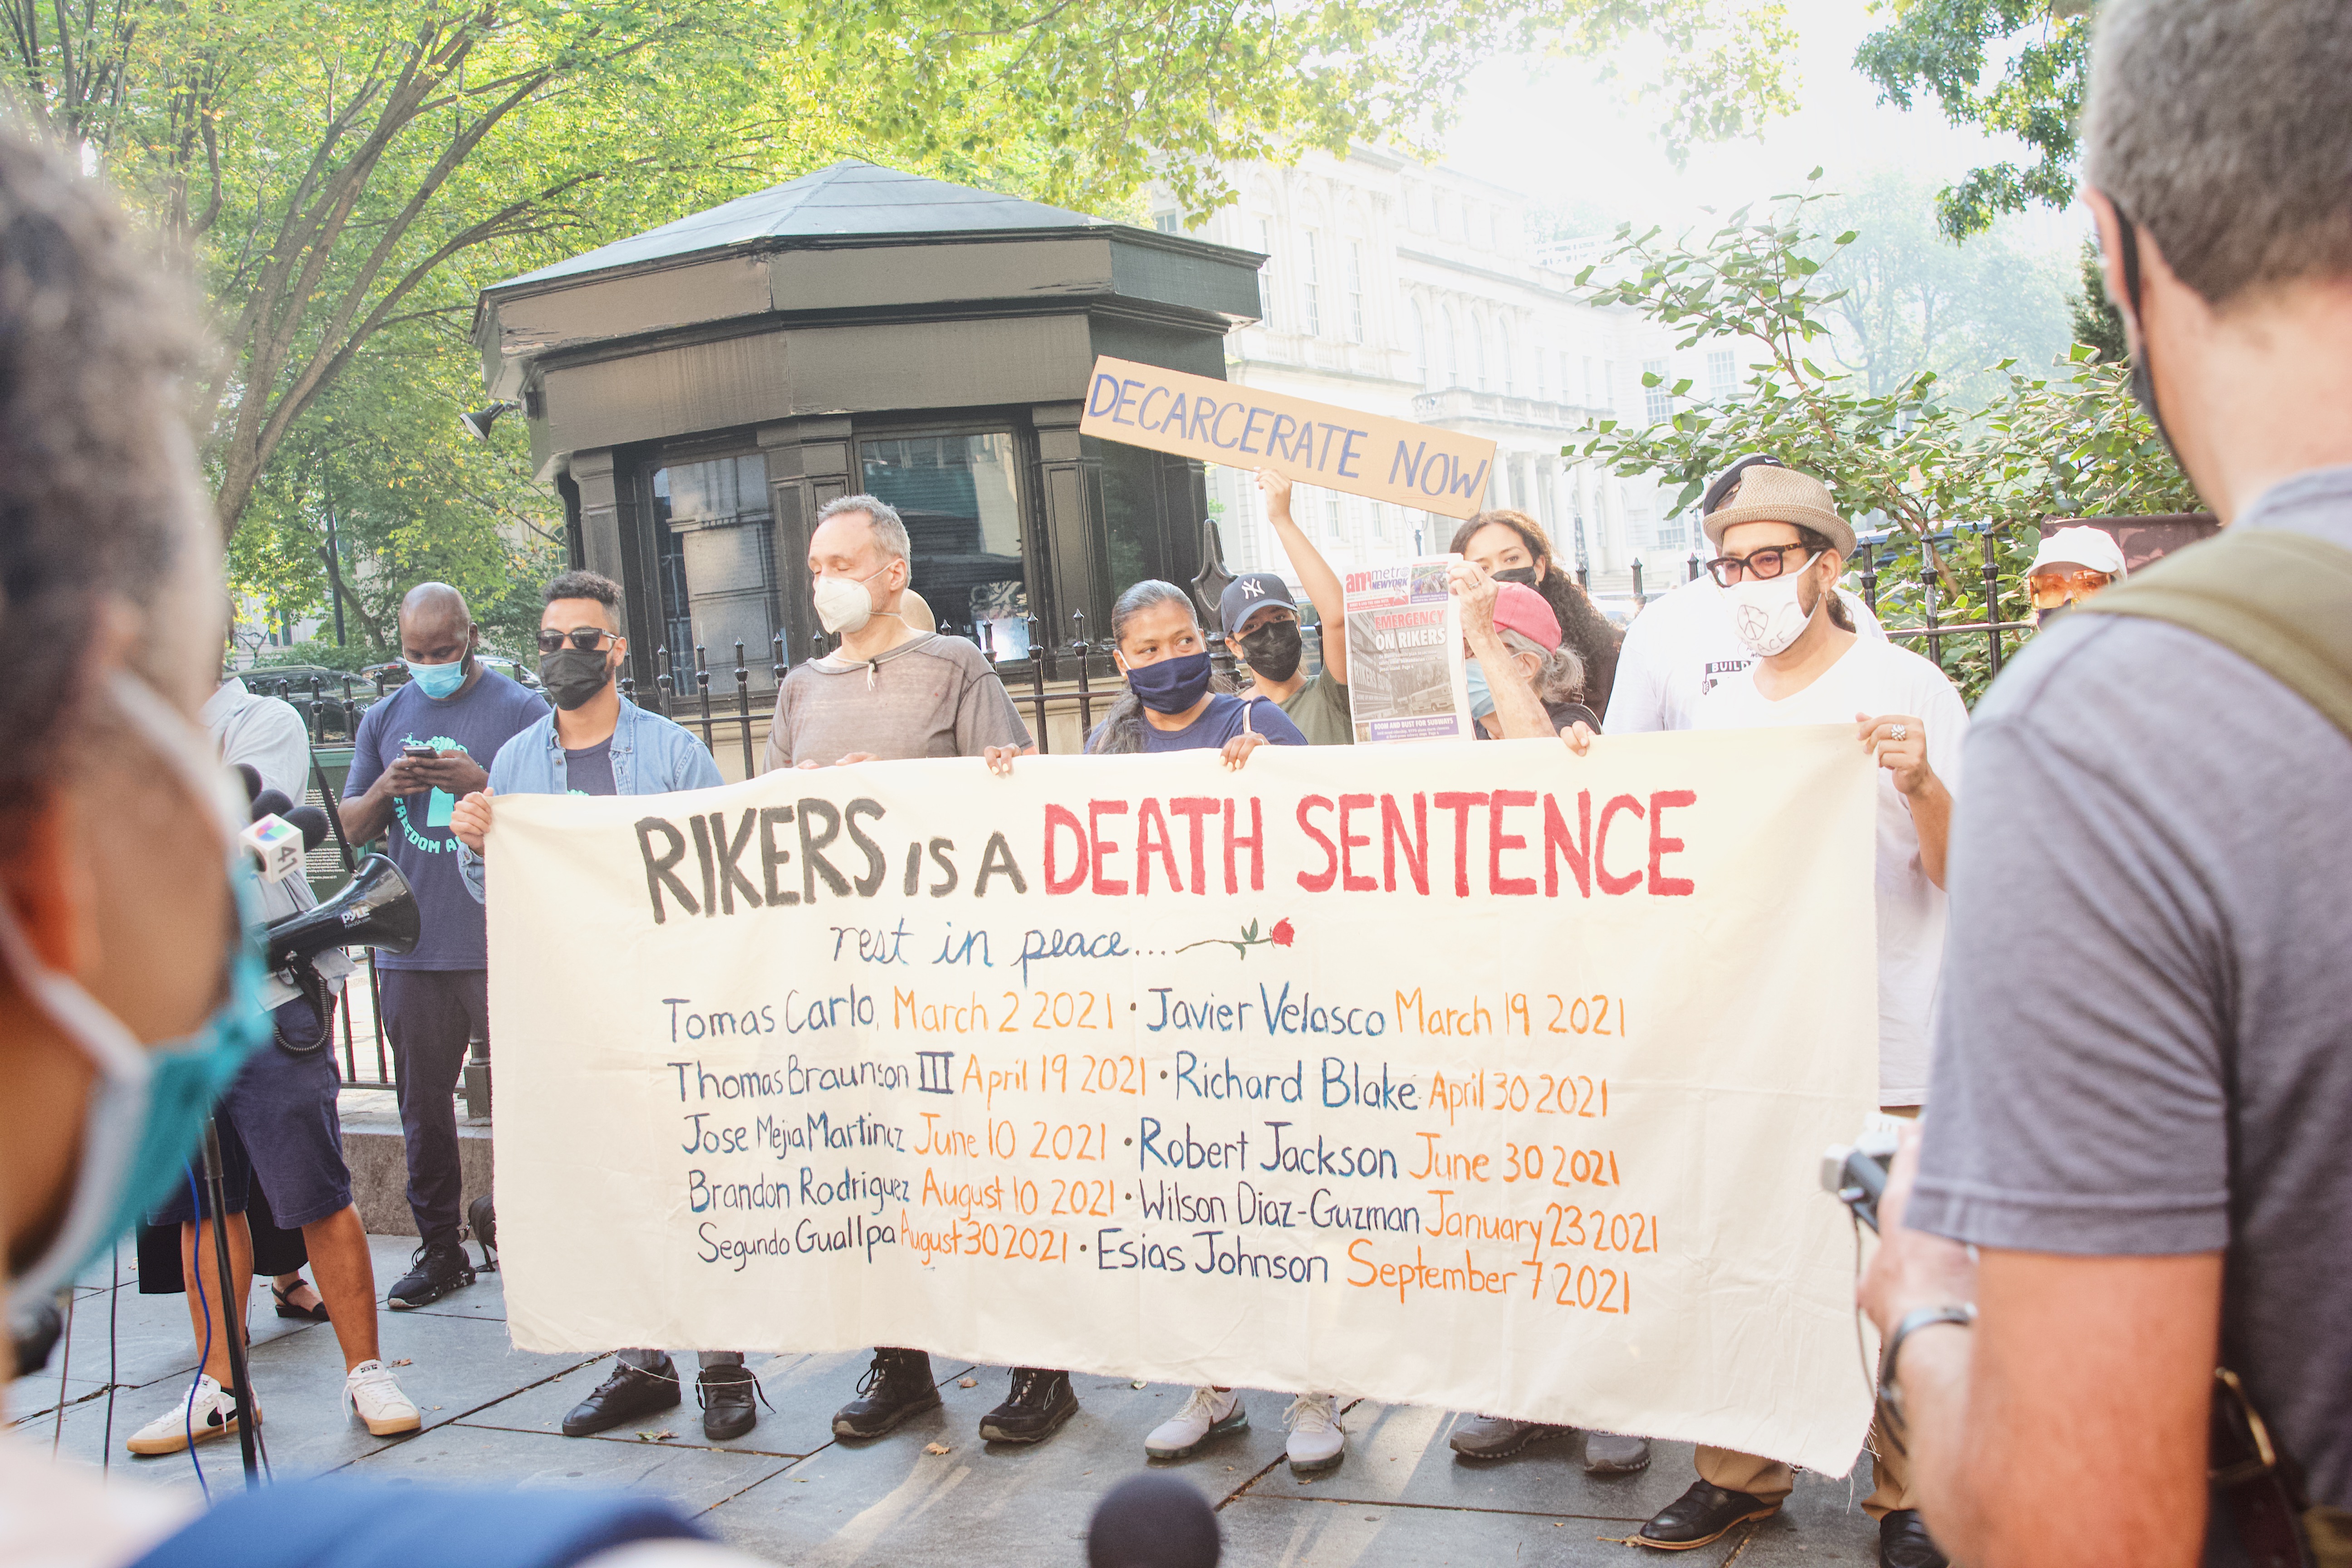 DECARCERATE NOW
amMetro
NEWYORK
EMERGENCY
ON RIKERS
BUILD
PEACE
FREEDOM A
41
PYLE
RIKERS IS A DEATH SENTENCE
rest in peace...
Tomas Carlo, March 2 2021 · Javier Velasco March 19 2021
Thomas Braunson III April 19 2021 · Richard Blake April 30 2021
Jose Mejia Martinez June 10 2021 · Robert Jackson June 30 2021
Brandon Rodriguez August 10 2021 · Wilson Diaz-Guzman January 23 2021
Segundo Guallpa August 30 2021 · Esias Johnson September 7 2021